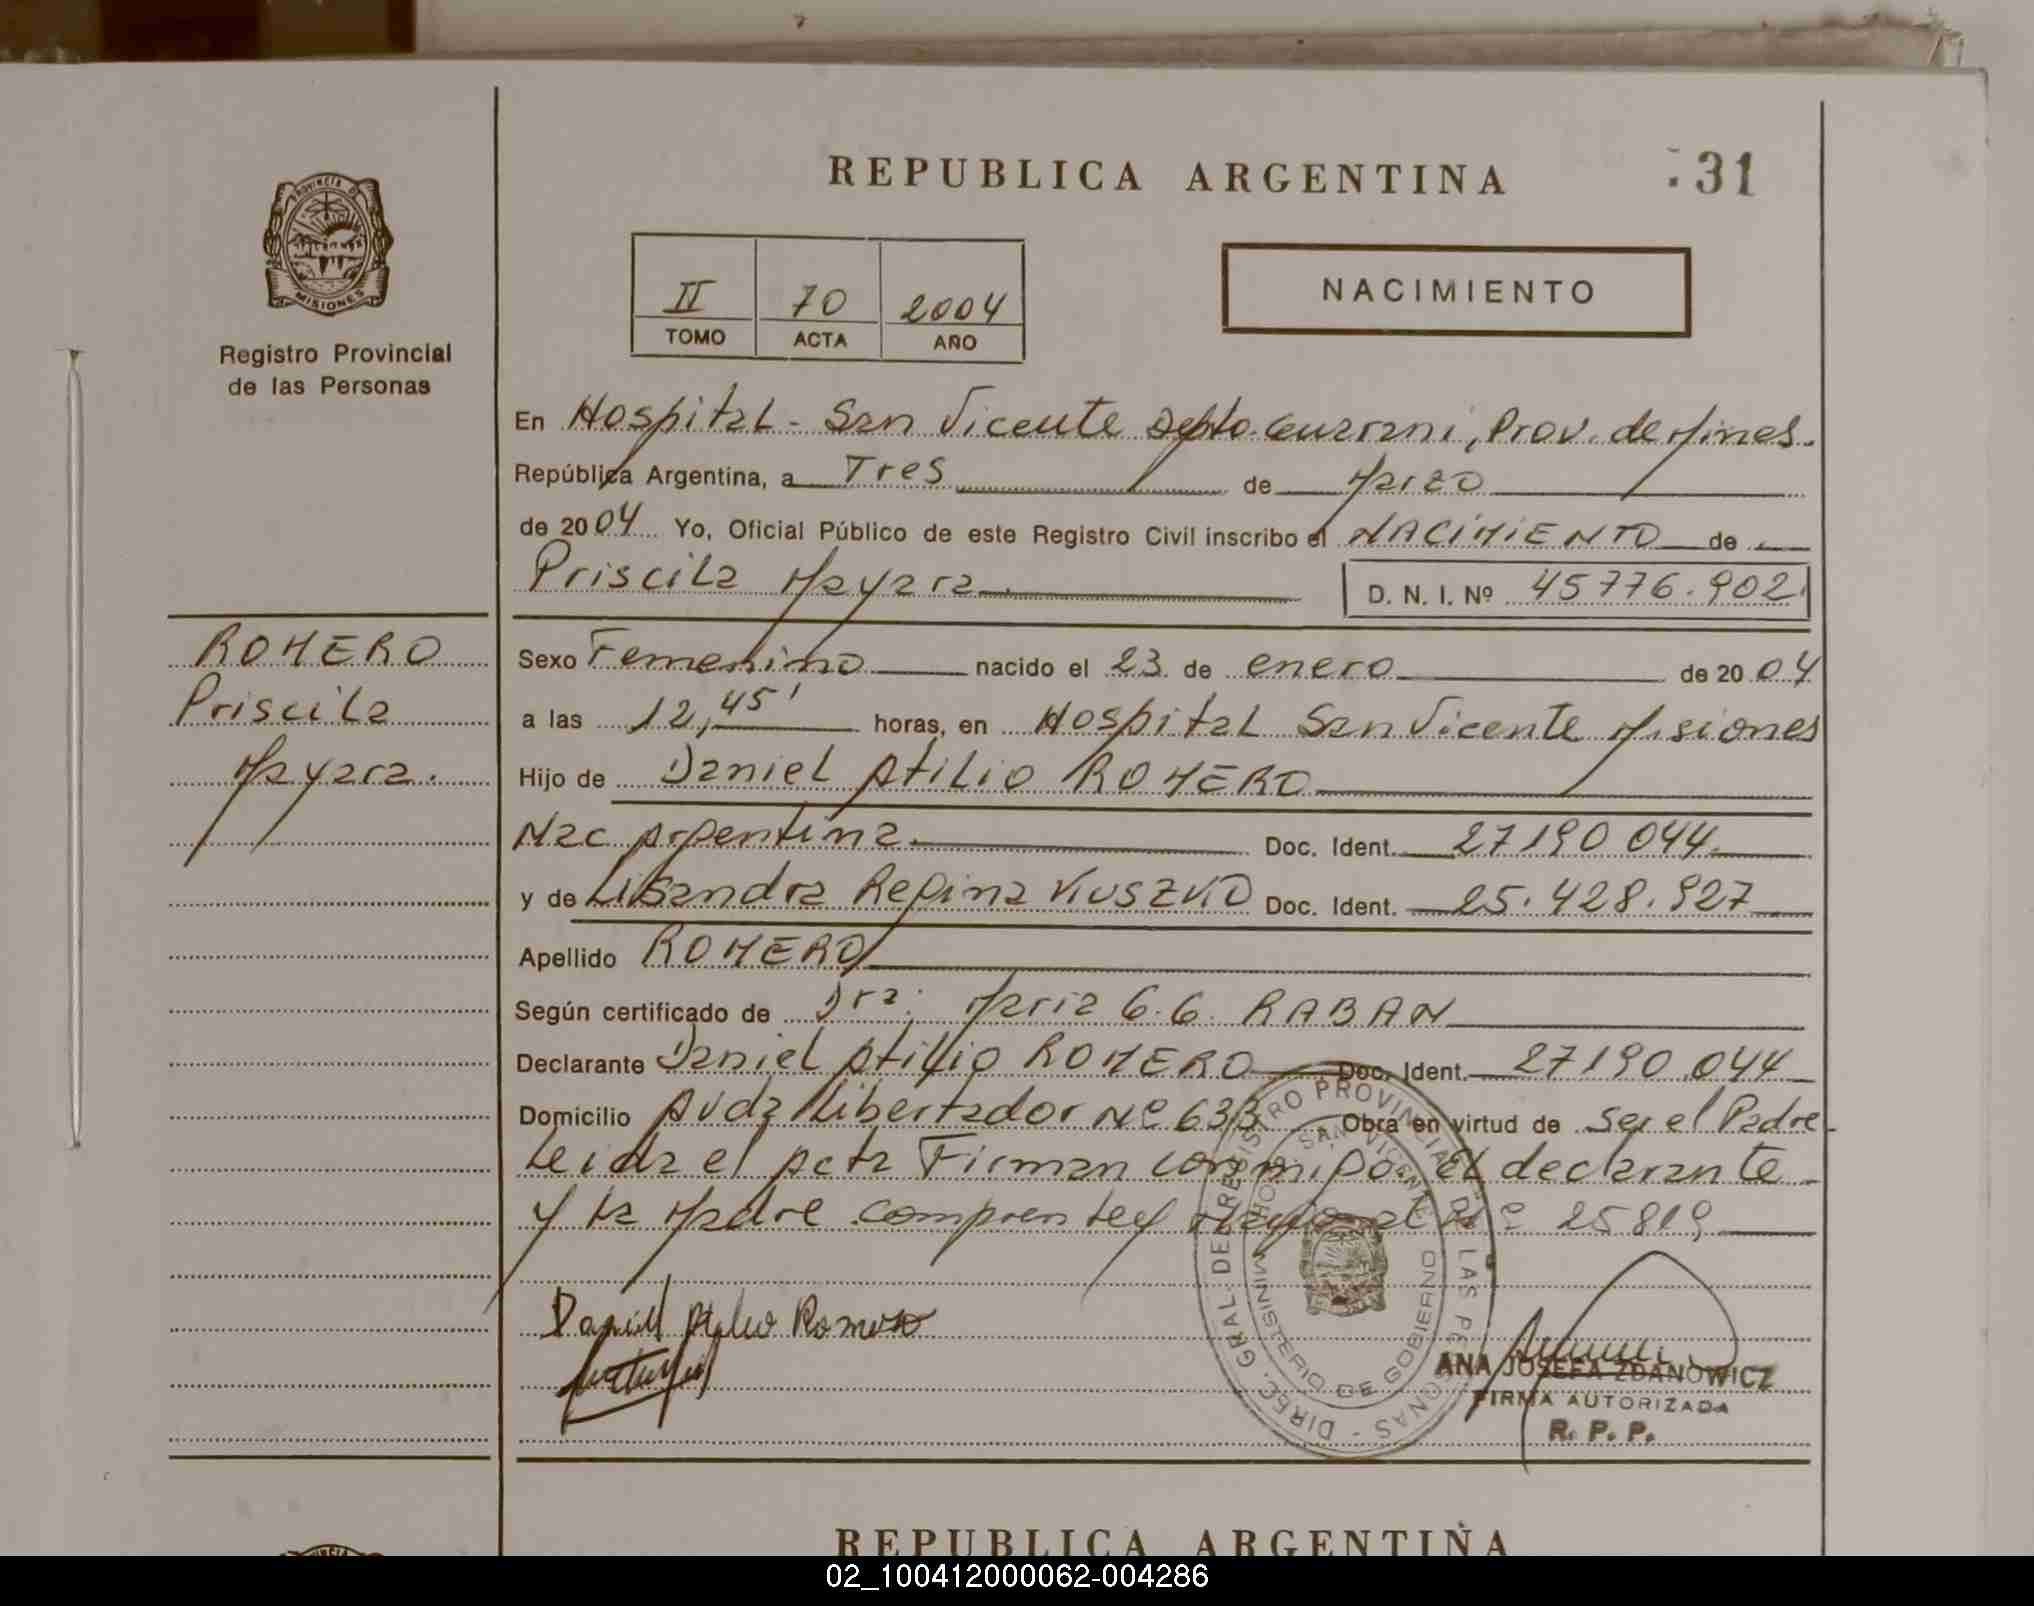 REPUBLICA ARGENTINA
31
PROVINCIA DE
MISIONES
Registro Provincial
de las Personas
II 70 2004
TOMO ACTA AÑO
NACIMIENTO
En Hospital - San Vicente Depto. Guarani, Prov. de Mnes.
República Argentina, a Tres de Marzo
de 2004 Yo, Oficial Público de este Registro Civil inscribo el NACIMIENTO de
Priscila Mayara D. N. I. Nº 45776.902
ROMERO
Priscila
Mayara.
Sexo Femenino nacido el 23 de enero de 20 04
a las 12,45' horas, en Hospital San Vicente Misiones
Hijo de Daniel Atilio ROMERO
Nac Argentina. Doc. Ident. 27190 044
y de Lisandra Regina KUSZKO Doc. Ident. 25.428.927
Apellido ROMERO
Según certificado de Dra: Maria G.G. RABAN
Declarante Daniel Atilio ROMERO Doc. Ident. 27190.044
Domicilio Avda Libertador Nº 633 Obra en virtud de ser el Padre
Leida el Acta Firman conmigo. El declarante
y la Madre Comprob. Ley Nº 25819
DIREC. GRAL. DEL REGISTRO PROVINCIAL DE LAS PERSONAS
HOSP. SAN VICENTE
MINISTERIO DE GOBIERNO
Daniel Atilio Romero
ANA JOSEFA ZDANOWICZ
FIRMA AUTORIZADA
R. P. P.
REPUBLICA ARGENTINA
02_100412000062-004286